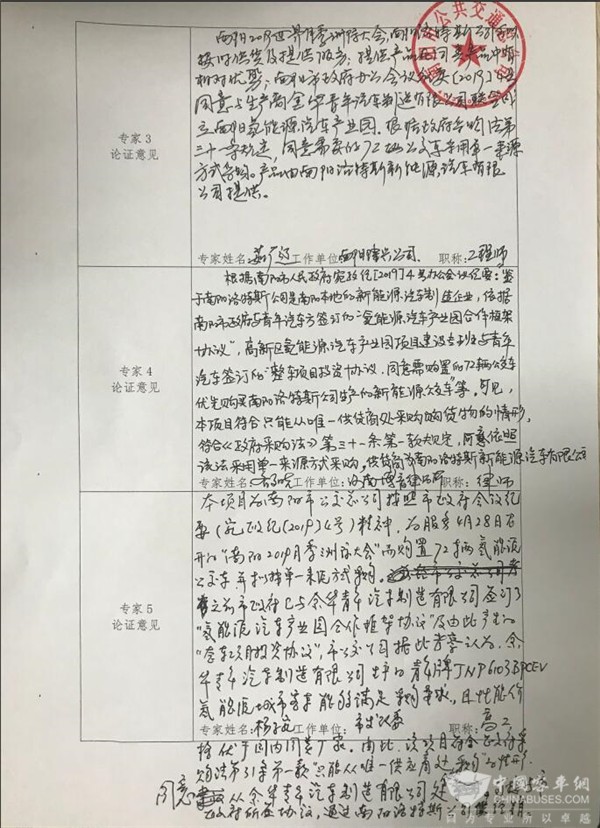 公共交通
专家3
论证意见
南阳2019世界月季洲际大会,南阳洛特斯公司能
按时供货及提供服务,提供产品在同类产品中有
相对优势;南阳市政府办公会议纪要(2019)4号
同意与生产商金华青年汽车制造有限公司联合成
立南阳氢能源汽车产业园。根据政府采购法第
三十一条规定,同意需要的72辆公交车采用单一来源
方式采购。产品由南阳洛特斯新能源汽车有限
公司提供。
专家姓名: 工作单位: 职称:工程师
专家4
论证意见
根据南阳市人民政府宛政纪[2019]4号办公会议纪要:鉴
于南阳洛特斯公司是南阳本地的新能源汽车制造企业,依据
南阳市政府与青年汽车方签订的“氢能源汽车产业园合作框架
协议”,高新区氢能源汽车产业园项目建设专班与青年
汽车签订的“整车项目投资协议,同意需购置的72辆公交车
优先购买南阳洛特斯公司生产的新能源公交车”等。可见,
本项目符合只能从唯一供货商处采购的货物的情形,
符合《政府采购法》第三十一条第一款规定,同意依照
该法采用单一来源方式采购,供货商为南阳洛特斯新能源汽车有限公司
专家姓名: 工作单位:河南博 律师 职称:律师
专家5
论证意见
本项目为南阳市公交总公司按照市政府会议纪
要(宛政纪(2019)4号)精神,为服务4月28日召
开的“南阳2019月季洲际大会”而购置72辆氢能源
公交车并拟按单一来源方式采购。
之前市政府已与金华青年汽车制造有限公司签订了
“氢能源汽车产业园合作框架协议”及由此产生的
“整车项目投资协议”,市公交公司据此考察认为,金
华青年汽车制造有限公司生产的青年牌JNP6103BFCEV
氢能源城市客车能够满足采购需求,且性能价
专家姓名:杨 工作单位: 市发改委 职称:高工
格优于国内同类厂家。由此,该项目符合政府采
购法第31条第一款“只能从唯一供应商处采购”的情形.
同意 从金华青年汽车制造有限公司处
政府所签协议,通过南阳洛特斯公司
中国客车网
CHINABUSES.COM
因为专业所以卓越